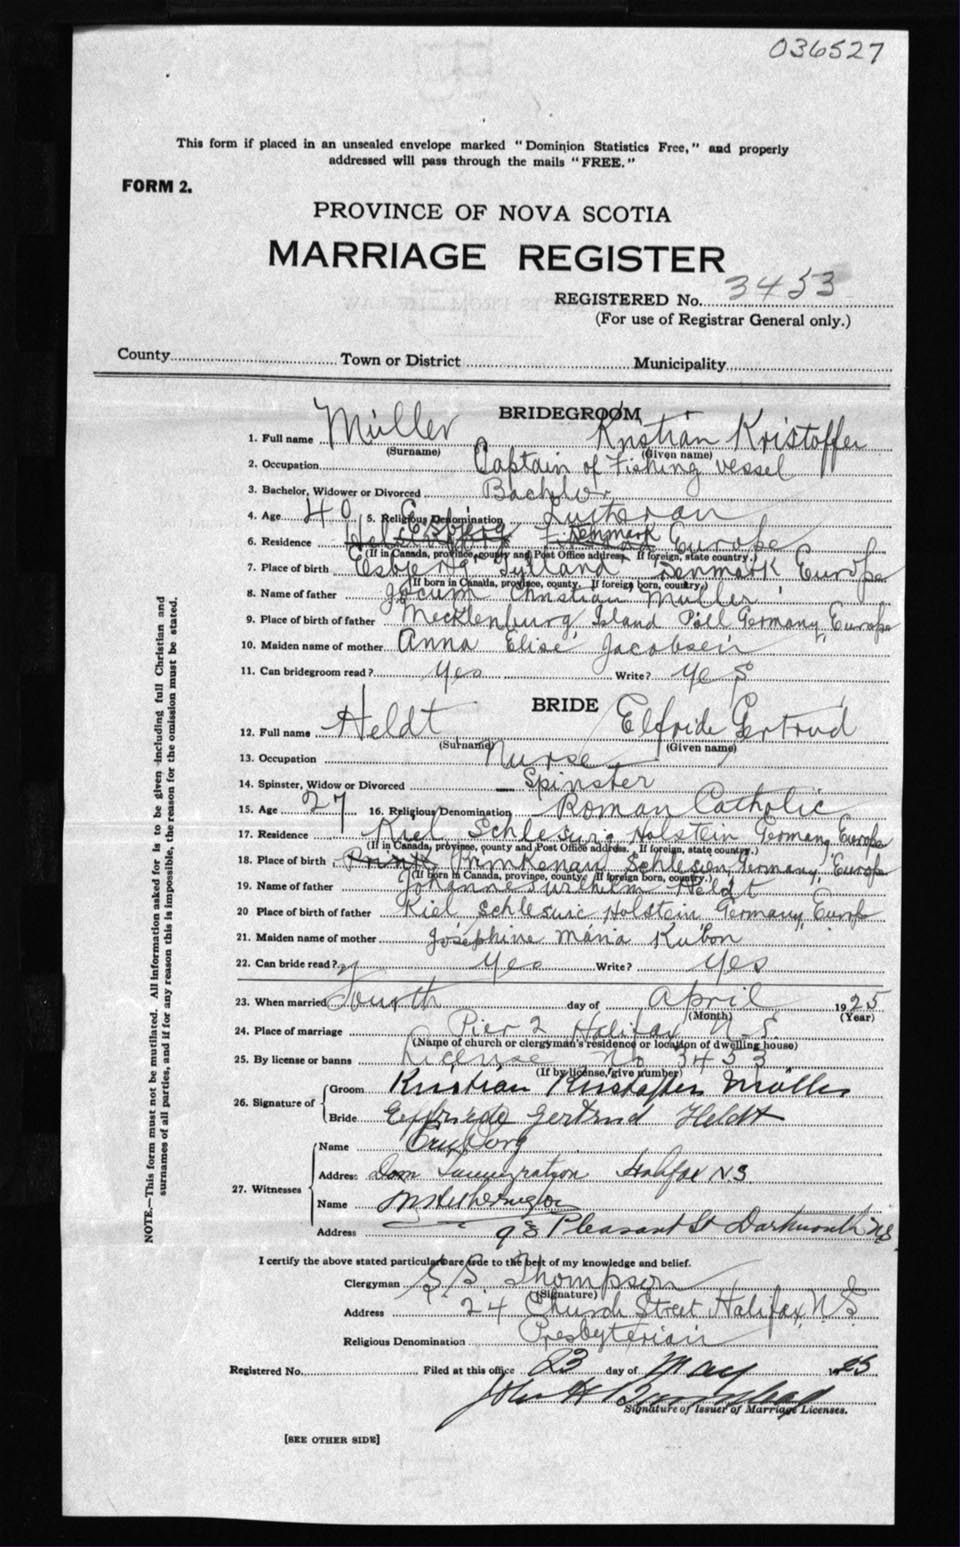 036527
This form if placed in an unsealed envelope marked "Dominion Statistics Free," and properly
addressed will pass through the mails "FREE."
FORM 2.
PROVINCE OF NOVA SCOTIA
MARRIAGE REGISTER
REGISTERED No. 3453
(For use of Registrar General only.)
County Town or District Municipality
BRIDEGROOM
1. Full name Müller Kristian Kristoffer
(Surname) (Given name)
2. Occupation Captain of Fishing vessel
3. Bachelor, Widower or Divorced Bachlor
4. Age 40 5. Religious Denomination Lutheran
6. Residence Esbjerg Denmark Europe
(If in Canada, province, county and Post Office address. If foreign, state country.)
7. Place of birth Esbjerg Jylland Denmark Europe
(If born in Canada, province, county. If foreign born, country.)
8. Name of father Jocum Christian Müller
9. Place of birth of father Mecklenburg Island Pöel Germany, Europe
10. Maiden name of mother Anna Elise Jacobsen
11. Can bridegroom read? Yes Write? Yes
BRIDE
12. Full name Heldt Elfride Gertrud
(Surname) (Given name)
13. Occupation Nurse
14. Spinster, Widow or Divorced Spinster
15. Age 27 16. Religious Denomination Roman Catholic
17. Residence Kiel Schleswig Holstein German, Europe
(If in Canada, province, county and Post Office address. If foreign, state country.)
18. Place of birth Primkenau Schlesien, Germany, Europe
(If born in Canada, province, county. If foreign born, country.)
19. Name of father Heldt
20 Place of birth of father Kiel Schleswic Holstein, Germany, Europ
21. Maiden name of mother Josephine Maria Kubon
22. Can bride read? Yes Write? Yes
23. When married Fourth day of April 1925
(Month) (Year)
24. Place of marriage Pier 2 Halifax N.S.
(Name of church or clergyman's residence or location of dwelling house)
25. By license or banns License No 3453
(If by license, give number)
26. Signature of Groom Kristian Kristoffer Müller
Bride Elfriede Gertrud Heldt
27. Witnesses Name
Address Dom Immigration Halifax N S
Name
Address 98 Pleasant St Dartmouth N.S.
I certify the above stated particulars are true to the best of my knowledge and belief.
Clergyman S. S. Thompson
(Signature)
Address 24 Church Street Halifax, N.S.
Religious Denomination Presbyterian
Registered No. Filed at this office 23 day of May 1925
John H
Signature of Issuer of Marriage Licenses.
[SEE OTHER SIDE]
NOTE.—This form must not be mutilated. All information asked for is to be given including full Christian and
surnames of all parties, and if for any reason this is impossible, the reason for the omission must be stated.